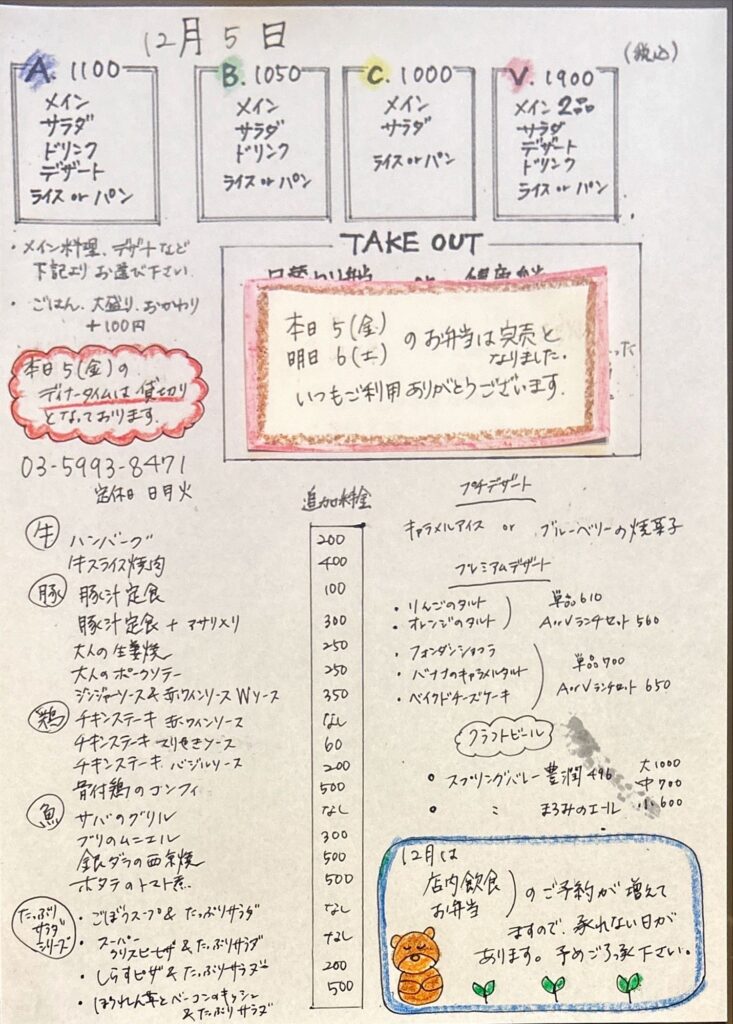 12月5日
(税込)
A. 1100
メイン
サラダ
ドリンク
デザート
ライス or パン
B. 1050
メイン
サラダ
ドリンク
ライス or パン
C. 1000
メイン
サラダ
ライス or パン
V. 1900
メイン 2品
サラダ
デザート
ドリンク
ライス or パン
・メイン料理、デザートなど
下記より お選び下さい。
・ごはん、大盛り、おかわり
+100円
TAKE OUT
本日 5(金)
明日 6(土)
のお弁当は完売と
なりました。
いつもご利用ありがとうございます。
本日 5(金)の
ディナータイムは 貸切り
となっております。
03-5993-8471
定休日 日月火
追加料金
牛
ハンバーグ 200
牛スライス焼肉 400
豚
豚汁定食 100
豚汁定食 + アサリメリ 300
大人の生姜焼 250
大人のポークソテー 250
ジンジャーソース&赤ワインソース Wソース 350
鶏
チキンステーキ 赤ワインソース なし
チキンステーキ てりやきソース 60
チキンステーキ バジルソース 200
骨付鶏のコンフィ 500
魚
サバのグリル なし
ブリのムニエル 300
銀ダラの西京焼 500
ホタテのトマト煮 500
たっぷり
サラダ
シリーズ
・ごぼうスープ & たっぷりサラダ なし
・スーパー
クリスピーピザ & たっぷりサラダ なし
・しらすピザ & たっぷりサラダ 200
・ほうれん草とベーコンのキッシュ
& たっぷりサラダ 500
プチデザート
キャラメルアイス or ブルーベリーの焼菓子
プレミアムデザート
・りんごのタルト
・オレンジのタルト
単品 610
A or V ランチセット 560
・フォンダンショコラ
・バナナのキャラメルタルト
・ベイクドチーズケーキ
単品 700
A or V ランチセット 650
クラフトビール
○ スプリングバレー 豊潤 496
○ 〃 まろみのエール
大 1000
中 700
小 600
12月は
店内飲食
お弁当
のご予約が増えて
ますので、承れない日が
あります。予めご了承下さい。